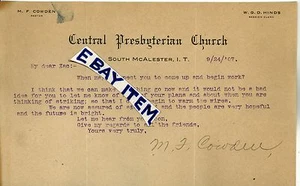 M. F. COWDEN
PASTOR
W. S. D. HINDS
SESSION CLERK
Central Presbyterian Church
SOUTH McALESTER, I. T. 9/24/'07.
My dear Zac:-
When do want you to come up and begin work?
I think that we can make thing go now and it would not be a bad
idea for you to let me know of your plans and about when you are
thinking of striking; so that I begin to warn the wires.
We are now assured of and the people are very hopeful
and the future is bright.
Let me hear from you soon.
Give my regards to all the friends.
Yours very truly,
M. F. Cowden,
EBAY ITEM